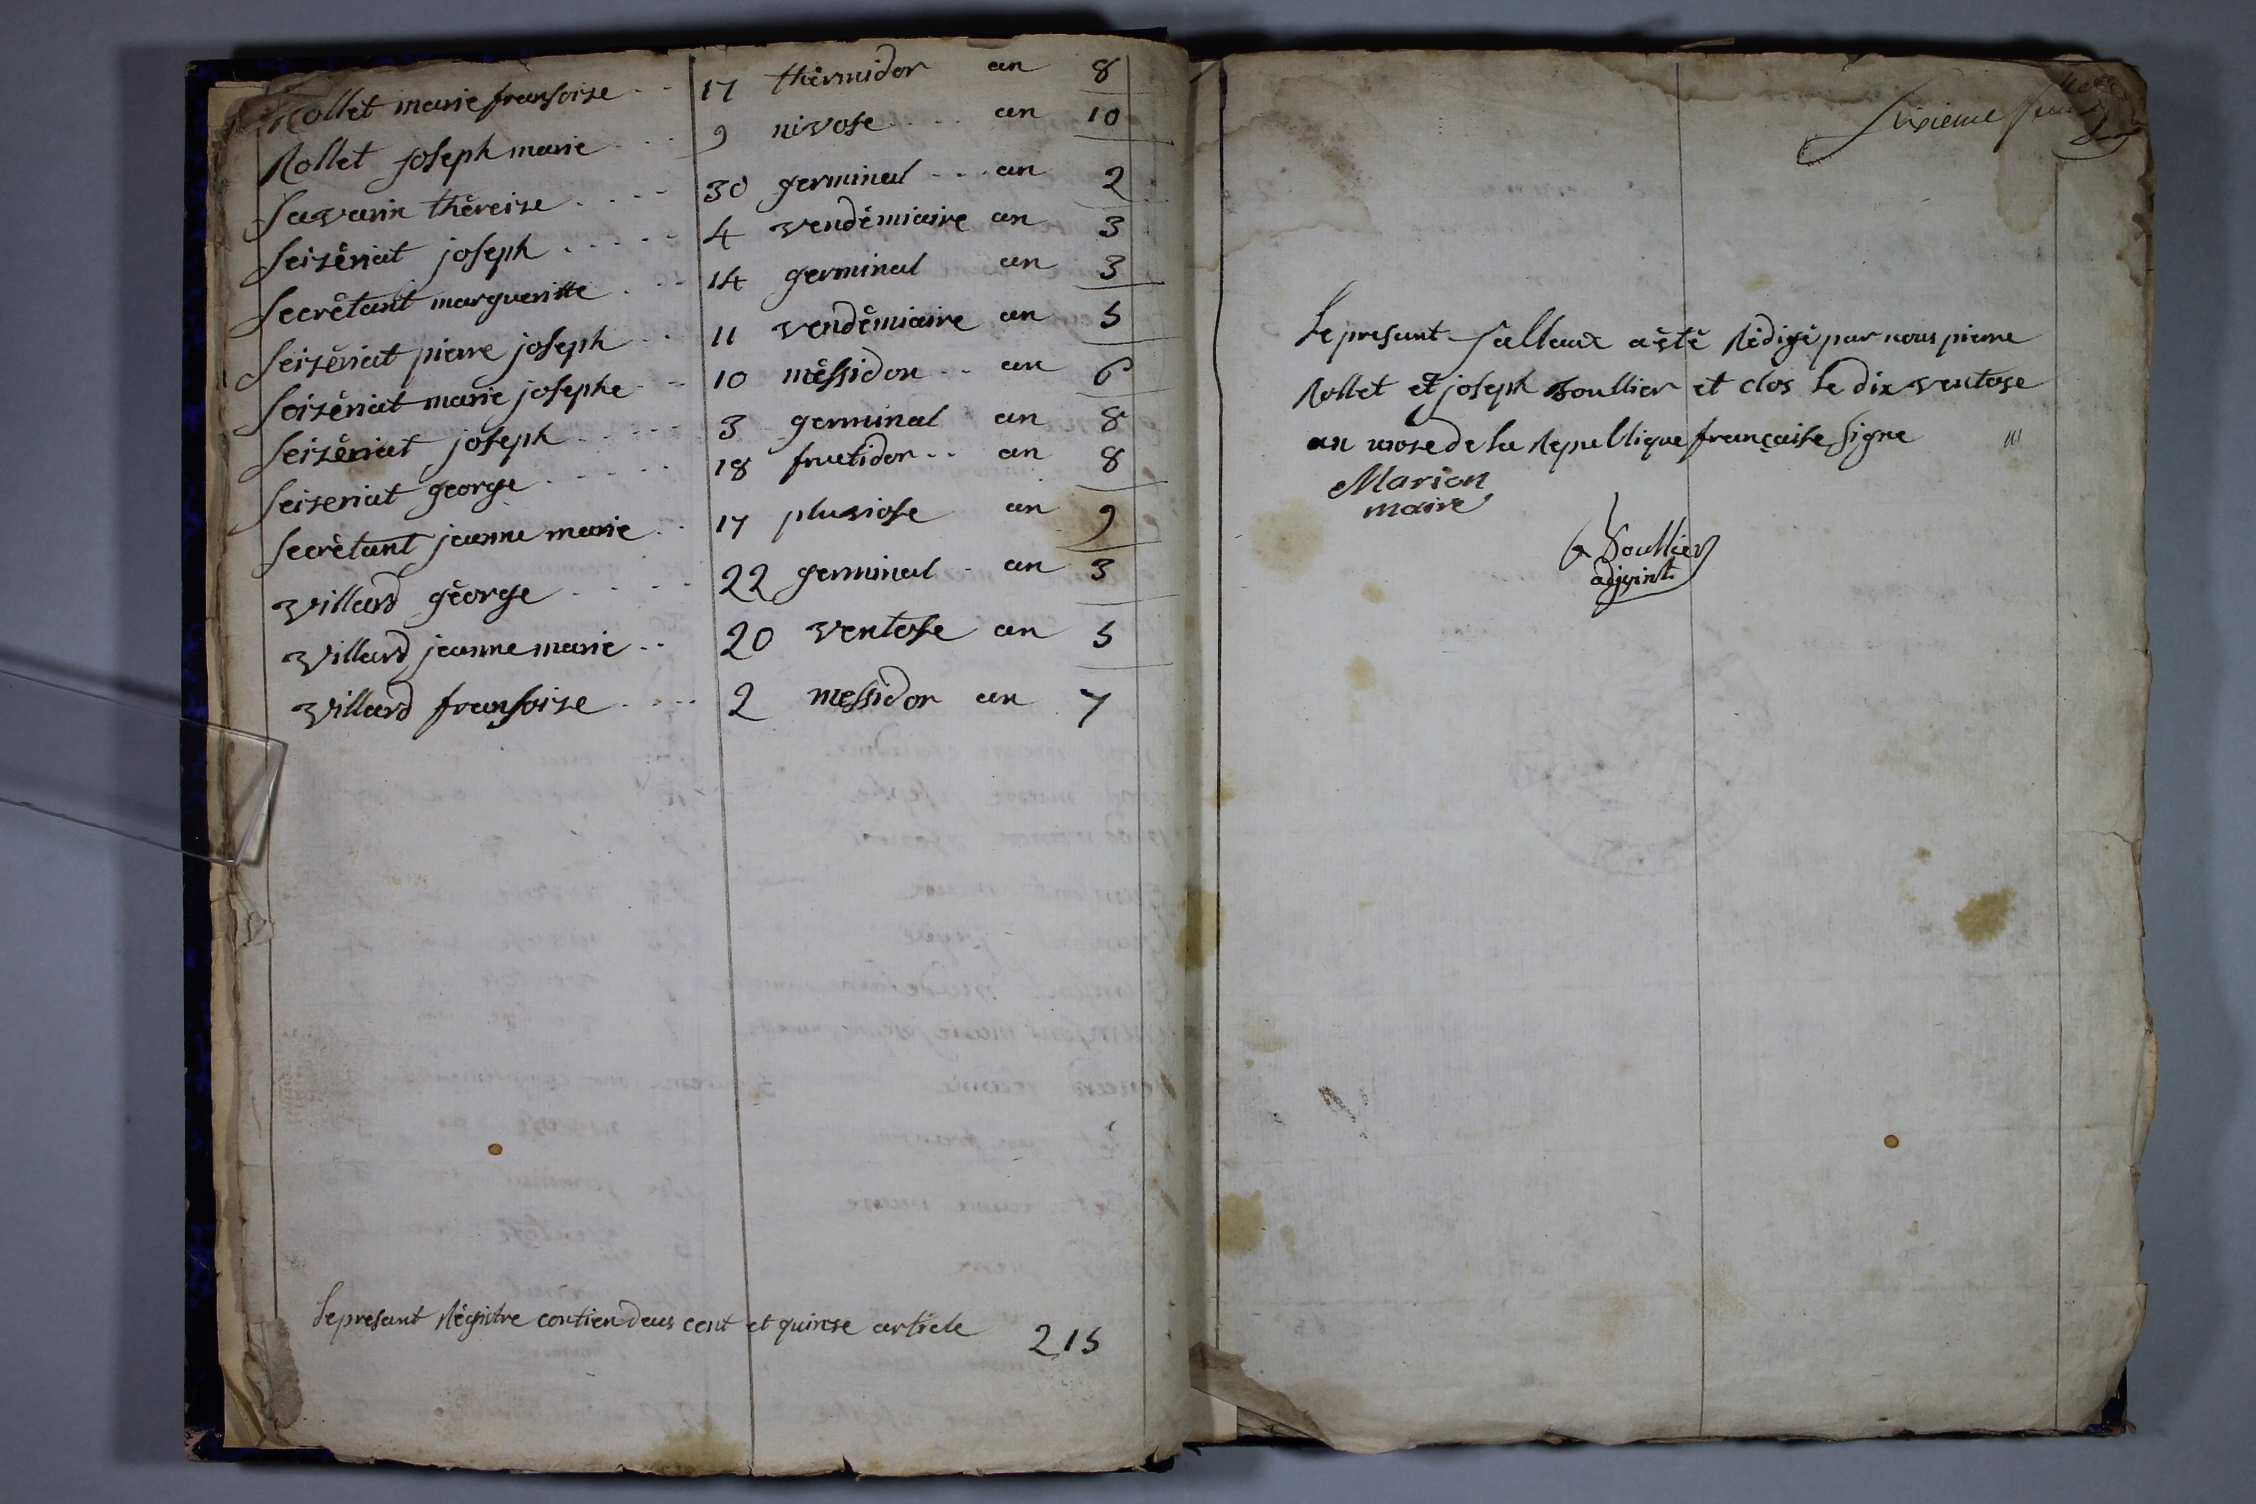 Rollet marie fransoise - - 17 thèrmidor an 8
Rollet joseph marie - - - 9 nivose - - - an 10
Savarin thèreize - - - - 30 germinal - - - an 2
Seizèriat joseph - - - - - 4 vendèmiaire an 3
Secrètant margueritte - - - 14 germinal an 3
Seizèriat pierre joseph - - 11 vendèmiaire an 5
Soizèriat marie josephe - - 10 mèssidor - - an 6
Seizèriat joseph - - - - - 3 germinal an 8
Seizeriat george - - - - - 18 frutidor - - an 8
Secrètant jeanne marie - - 17 pluviose an 9
Villard gèorge - - - - 22 germinal - an 3
Villard jeanne marie - - 20 ventose an 5
Villard fransoize - - - - 2 messidor an 7
Le presant Règistre contien deus cent et quinse article 215
Sixieme
Le presant tallaux a ètè Rèdigè par nous pierre
Rollet et joseph Soullier et clos le dix ventose
an unze de la Republique française signe
Marion
maire
Soullier
adjoint